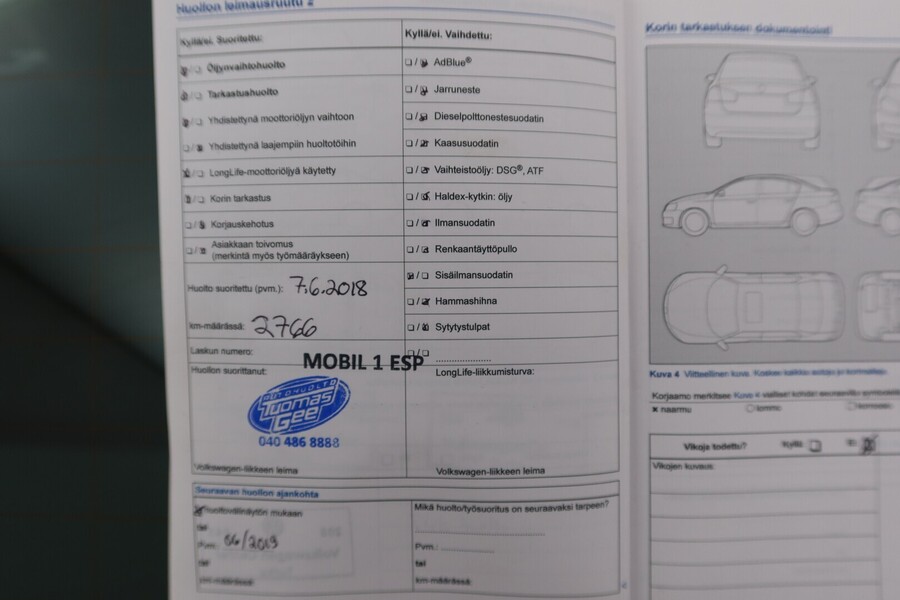 Huollon leimausruutu 2
Kyllä/ei. Suoritettu:
Öljynvaihtohuolto
Tarkastushuolto
Yhdistettynä moottoriöljyn vaihtoon
Yhdistettynä laajempiin huoltotöihin
LongLife-moottoriöljyä käytetty
Korin tarkastus
Korjauskehotus
Asiakkaan toivomus
(merkintä myös työmääräykseen)
Huolto suoritettu (pvm.): 7.6.2018
km-määrässä: 2766
Laskun numero:
Huollon suorittanut:
AUTOHUOLTO
Tuomas
Geel
040 486 8888
Volkswagen-liikkeen leima
Kyllä/ei. Vaihdettu:
AdBlue®
Jarruneste
Dieselpolttonestesuodatin
Kaasusuodatin
Vaihteistoöljy: DSG®, ATF
Haldex-kytkin: öljy
Ilmansuodatin
Renkaantäyttöpullo
Sisäilmansuodatin
Hammashihna
Sytytystulpat
MOBIL 1 ESP
LongLife-liikkumisturva:
Volkswagen-liikkeen leima
Seuraavan huollon ajankohta
Huoltovälinäytön mukaan
tai
Pvm.: 06/2019
tai
km-määrässä:
Mikä huolto/työsuoritus on seuraavaksi tarpeen?
Pvm.:
tai
km-määrässä:
Korin tarkastuksen dokumentointi
Kuva 4 Viitteellinen kuva.
Korjaamo merkitsee Kuva 4
naarmu
lommo
Vikoja todettu? Kyllä Ei
Vikojen kuvaus: